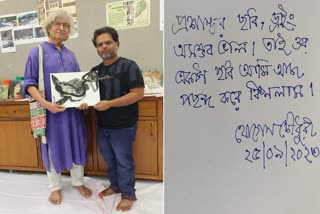 প্রশান্তর ছবি, ড্রইং
অসম্ভব ভাল। তাই ওর
একটি ছবি আমি আজ
পছন্দ করে কিনলাম।
যোগেন চৌধুরী
২৫/০৯/২০২৩